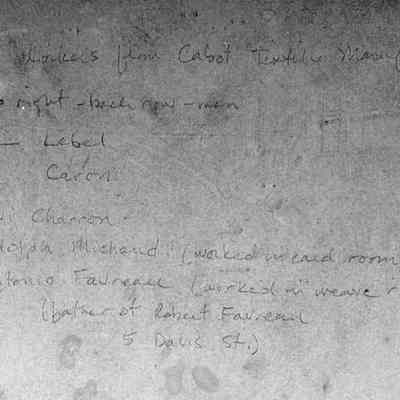 Workers from Cabot Textile Manuf
right - back row - men
— Lebel
Caron
Charron
Michaud (worked in card room
tonio Favreau (worked in weave r
(father of Robert Favreau
5 Davis St.)